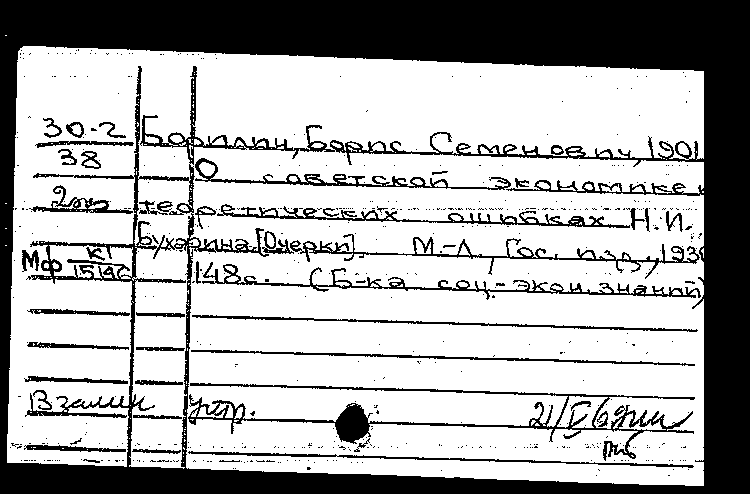 30-2 Борилин, Борис Семенович, 1901
38 О советской экономике и
2эк теоретических ошибках Н.И.
Бухарина. [Очерки]. М.-Л., Гос. изд., 193
Мф К1/15146 148с. (Б-ка соц.-экон. знаний)
Взамен утр. 21/V